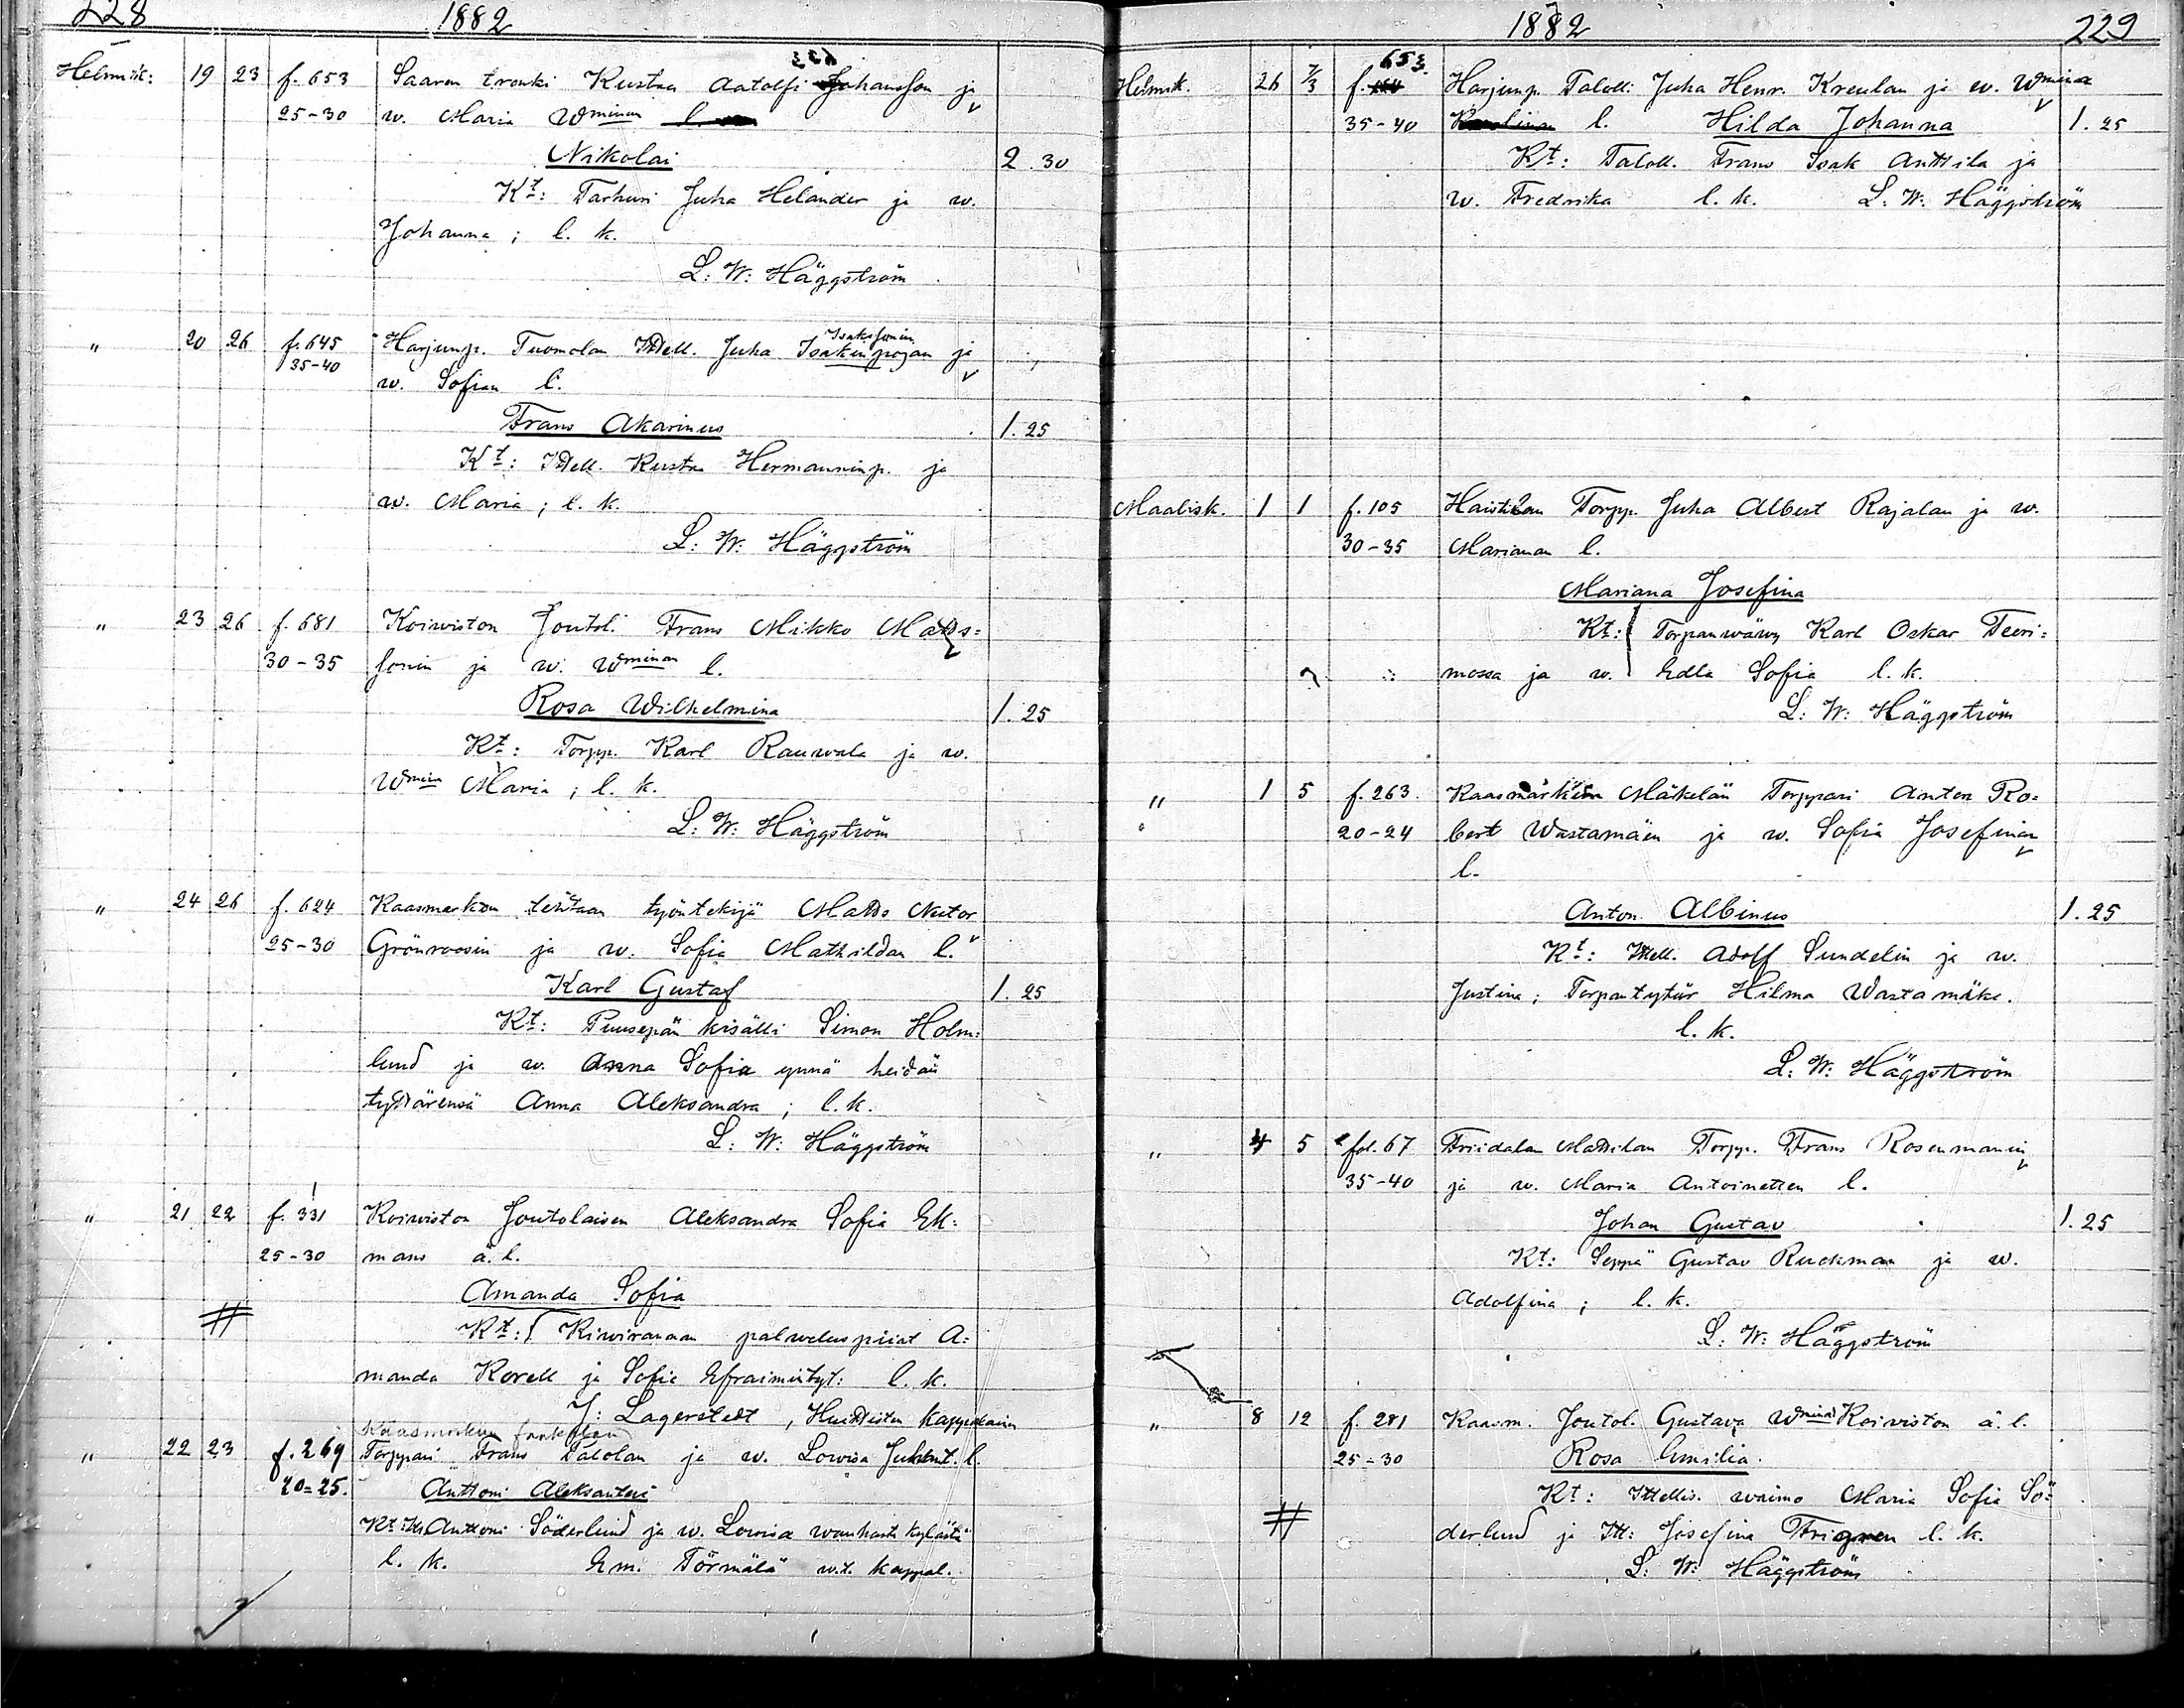 228 1882
Helmik: 19 23 f. 653 Saaren trenki Kustaa Aatolfi Johansson ja
25-30 w. Maria Wminan
Nikolai 2. 30
Kt: Tarhuri Juha Helander ja w.
Johanna; l. k.
L: W: Häggström
" 20 26 f. 645 Harjunp. Tuomolan ITtell. Juha Isakinpojan Isakssonin ja
35-40 w. Sofian l.
Frans Akarinus 1. 25
Kt: ITtell. Kustaa Hermanninp. ja
w. Maria; l. k.
L: W: Häggström
" 23 26 f. 681 Koiwiston Joutol. Frans Mikko Matts=
30-35 sonin ja w. Wminan l.
Rosa Wilhelmina 1. 25
Kt: Torpp. Karl Rauwala ja w.
Wmina Maria; l. k.
L: W: Häggström
" 24 26 f. 624 Kaasmarkun tehtaan työntekijä Matts Nestor
25-30 Grönroosin ja w. Sofia Mathildan l.
Karl Gustaf 1. 25
Kt: Puusepän kisälli Simon Holm=
lund ja w. Anna Sofia ynnä heidän
tyttärensä Anna Aleksandra; l. k.
L: W: Häggström
" 21 22 f. 331 Koiwiston Joutolaisen Aleksandra Sofia Ek=
25-30 mans ä. l.
Amanda Sofia
Kt: Kiwirannan palweluspiiat A=
manda Korell ja Sofia Efraimintyt: l. k.
J: Lagerstedt, Huittisten Kappalainen
Kaasmarkun
" 22 23 f. 269 Torppari Frans Talolan ja w. Lowisa Juhant. l.
20-25. Anttoni Aleksanteri
Kt: Itt. Anttoni Söderlund ja w. Lowisa wanhasta kylästä
l. k. Em. Törmälä w.t. kappal.
1882 229
Helmik. 26 7/3 f. 653. Harjunp. Taloll: Juha Henr. Kreulan ja w. Wmina
35-40 l. Hilda Johanna 1. 25
Kt: Taloll. Frans Isak Anttila ja
w. Fredrika l. k. L. W: Häggström
Maalisk. 1 1 f. 105 Haistilan Torpp. Juha Albert Rajalan ja w.
30-35 Marianan l.
Mariana Josefina
Kt: Torpanwäwy Karl Oskar Teeri=
mossa ja w. Edla Sofia l. k.
L: W: Häggström
" 1 5 f. 263. Kaasmarkun Mäkelän Torppari Anton Ro=
20-24 bert Wastamäen ja w. Sofia Josefinan
l.
Anton Albinus 1. 25
Kt: Ittell. Adolf Sundelin ja w.
Justina; Torpantytär Hilma Wastamäke.
l. k.
L: W: Häggström
" 4 5 fol. 67 Friidalan Mattilan Torpp. Frans Rosenmanin
35-40 ja w. Maria Antoinetten l.
Johan Gustav 1. 25
Kt: Seppä Gustav Ruckman ja w.
Adolfina; l. k.
L: W: Häggström
" 8 12 f. 281 Kaasm. Joutol. Gustava Wmina Koiviston ä. l.
25-30 Rosa Emilia.
Kt: Ittellis. waimo Maria Sofia Sö=
derlund ja Itt: Josefina Frigren l. k.
L: W: Häggström